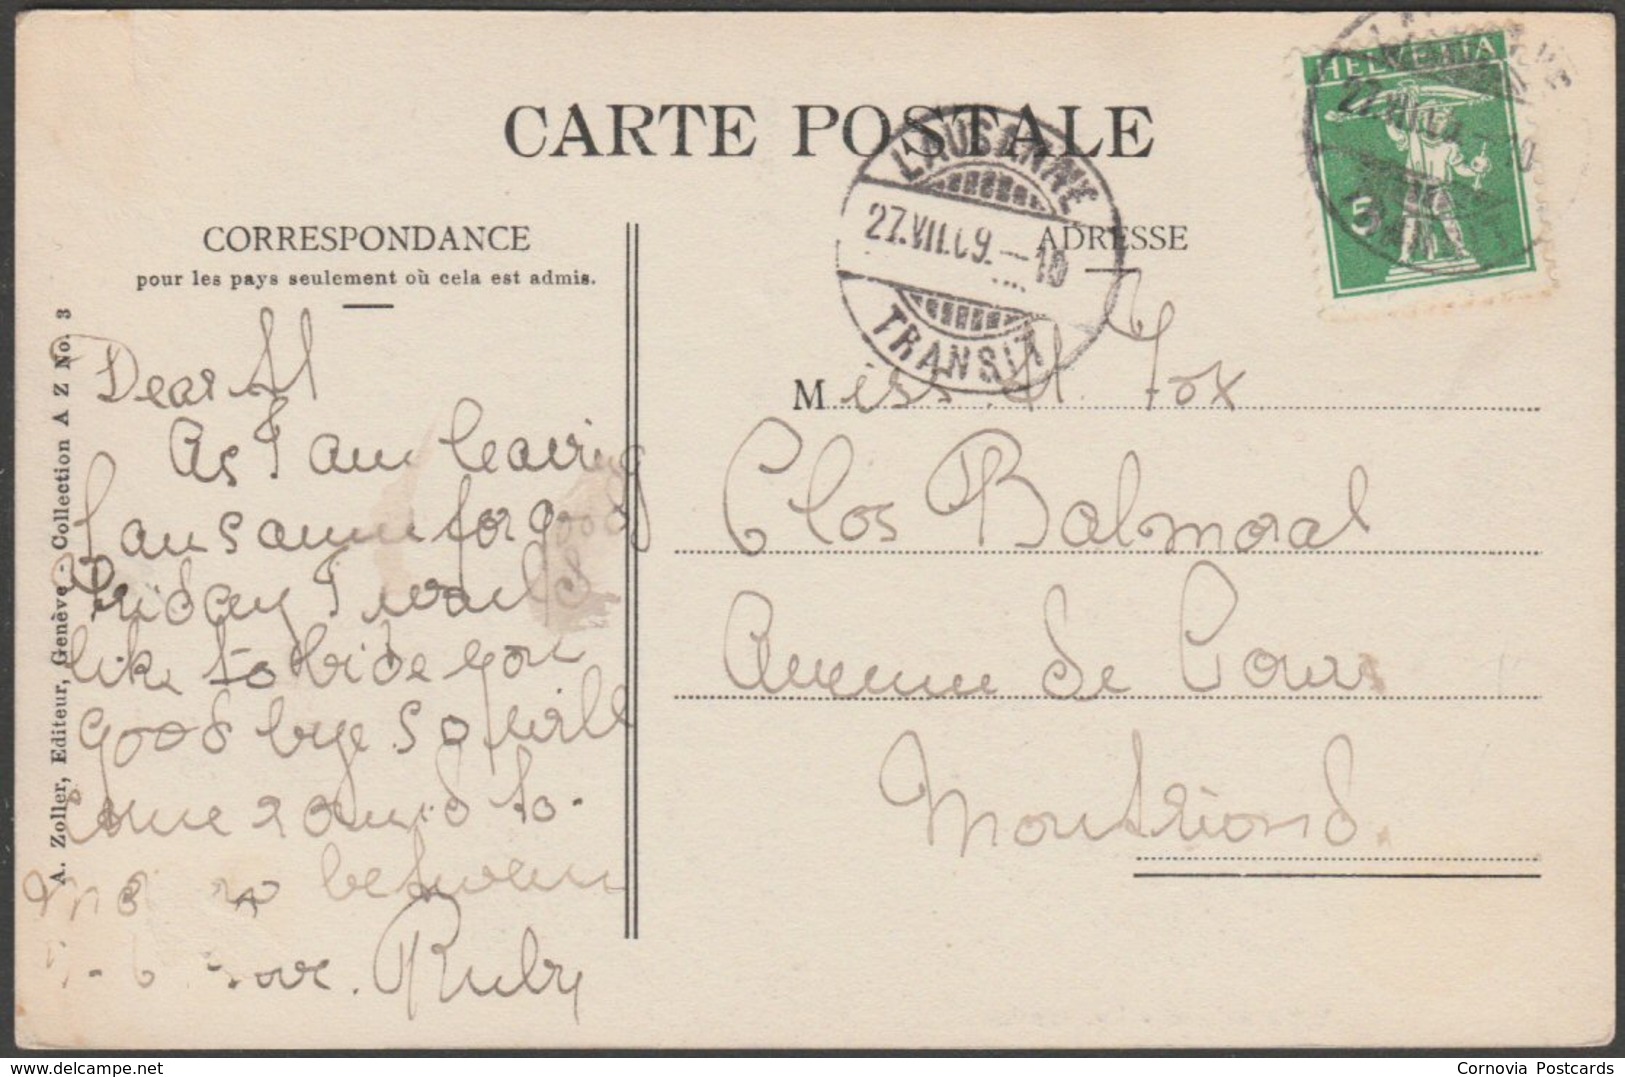 CARTE POSTALE
CORRESPONDANCE
pour les pays seulement où cela est admis.
ADRESSE
HELVETIA
5
LAUSANNE
27.VII.09.-10
TRANSIT
A. Zoller, Editeur, Genève - Collection A Z No. 3
Dear
As I am leaving
Lausanne for good
Friday I would
like to bide you
good bye so will
come round to-
between
love. Ruby
Miss M. Fox
Clos Balmoral
Avenue de Cour
Montriond.
Cornovia Postcards